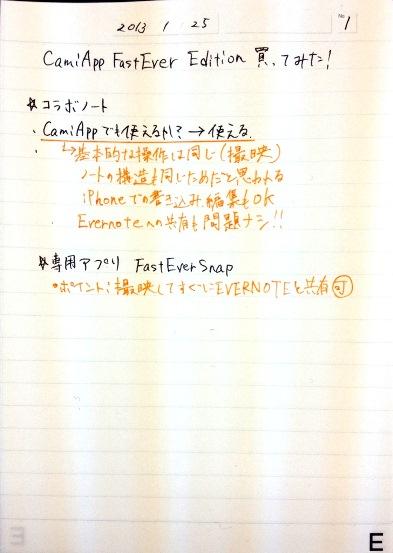 2013 1 25
No. 1
CamiApp FastEver Edition 買ってみた!
☆コラボノート
・CamiAppでも使えるか?→使える.
↳基本的な操作は同じ(撮映)
ノートの構造も同じためだと思われる
iPhoneでの書き込み.編集もOK
Evernoteへの共有も問題ナシ!!
☆専用アプリ FastEverSnap
・ポイント:撮映してすぐにEVERNOTEと共有可
E
E